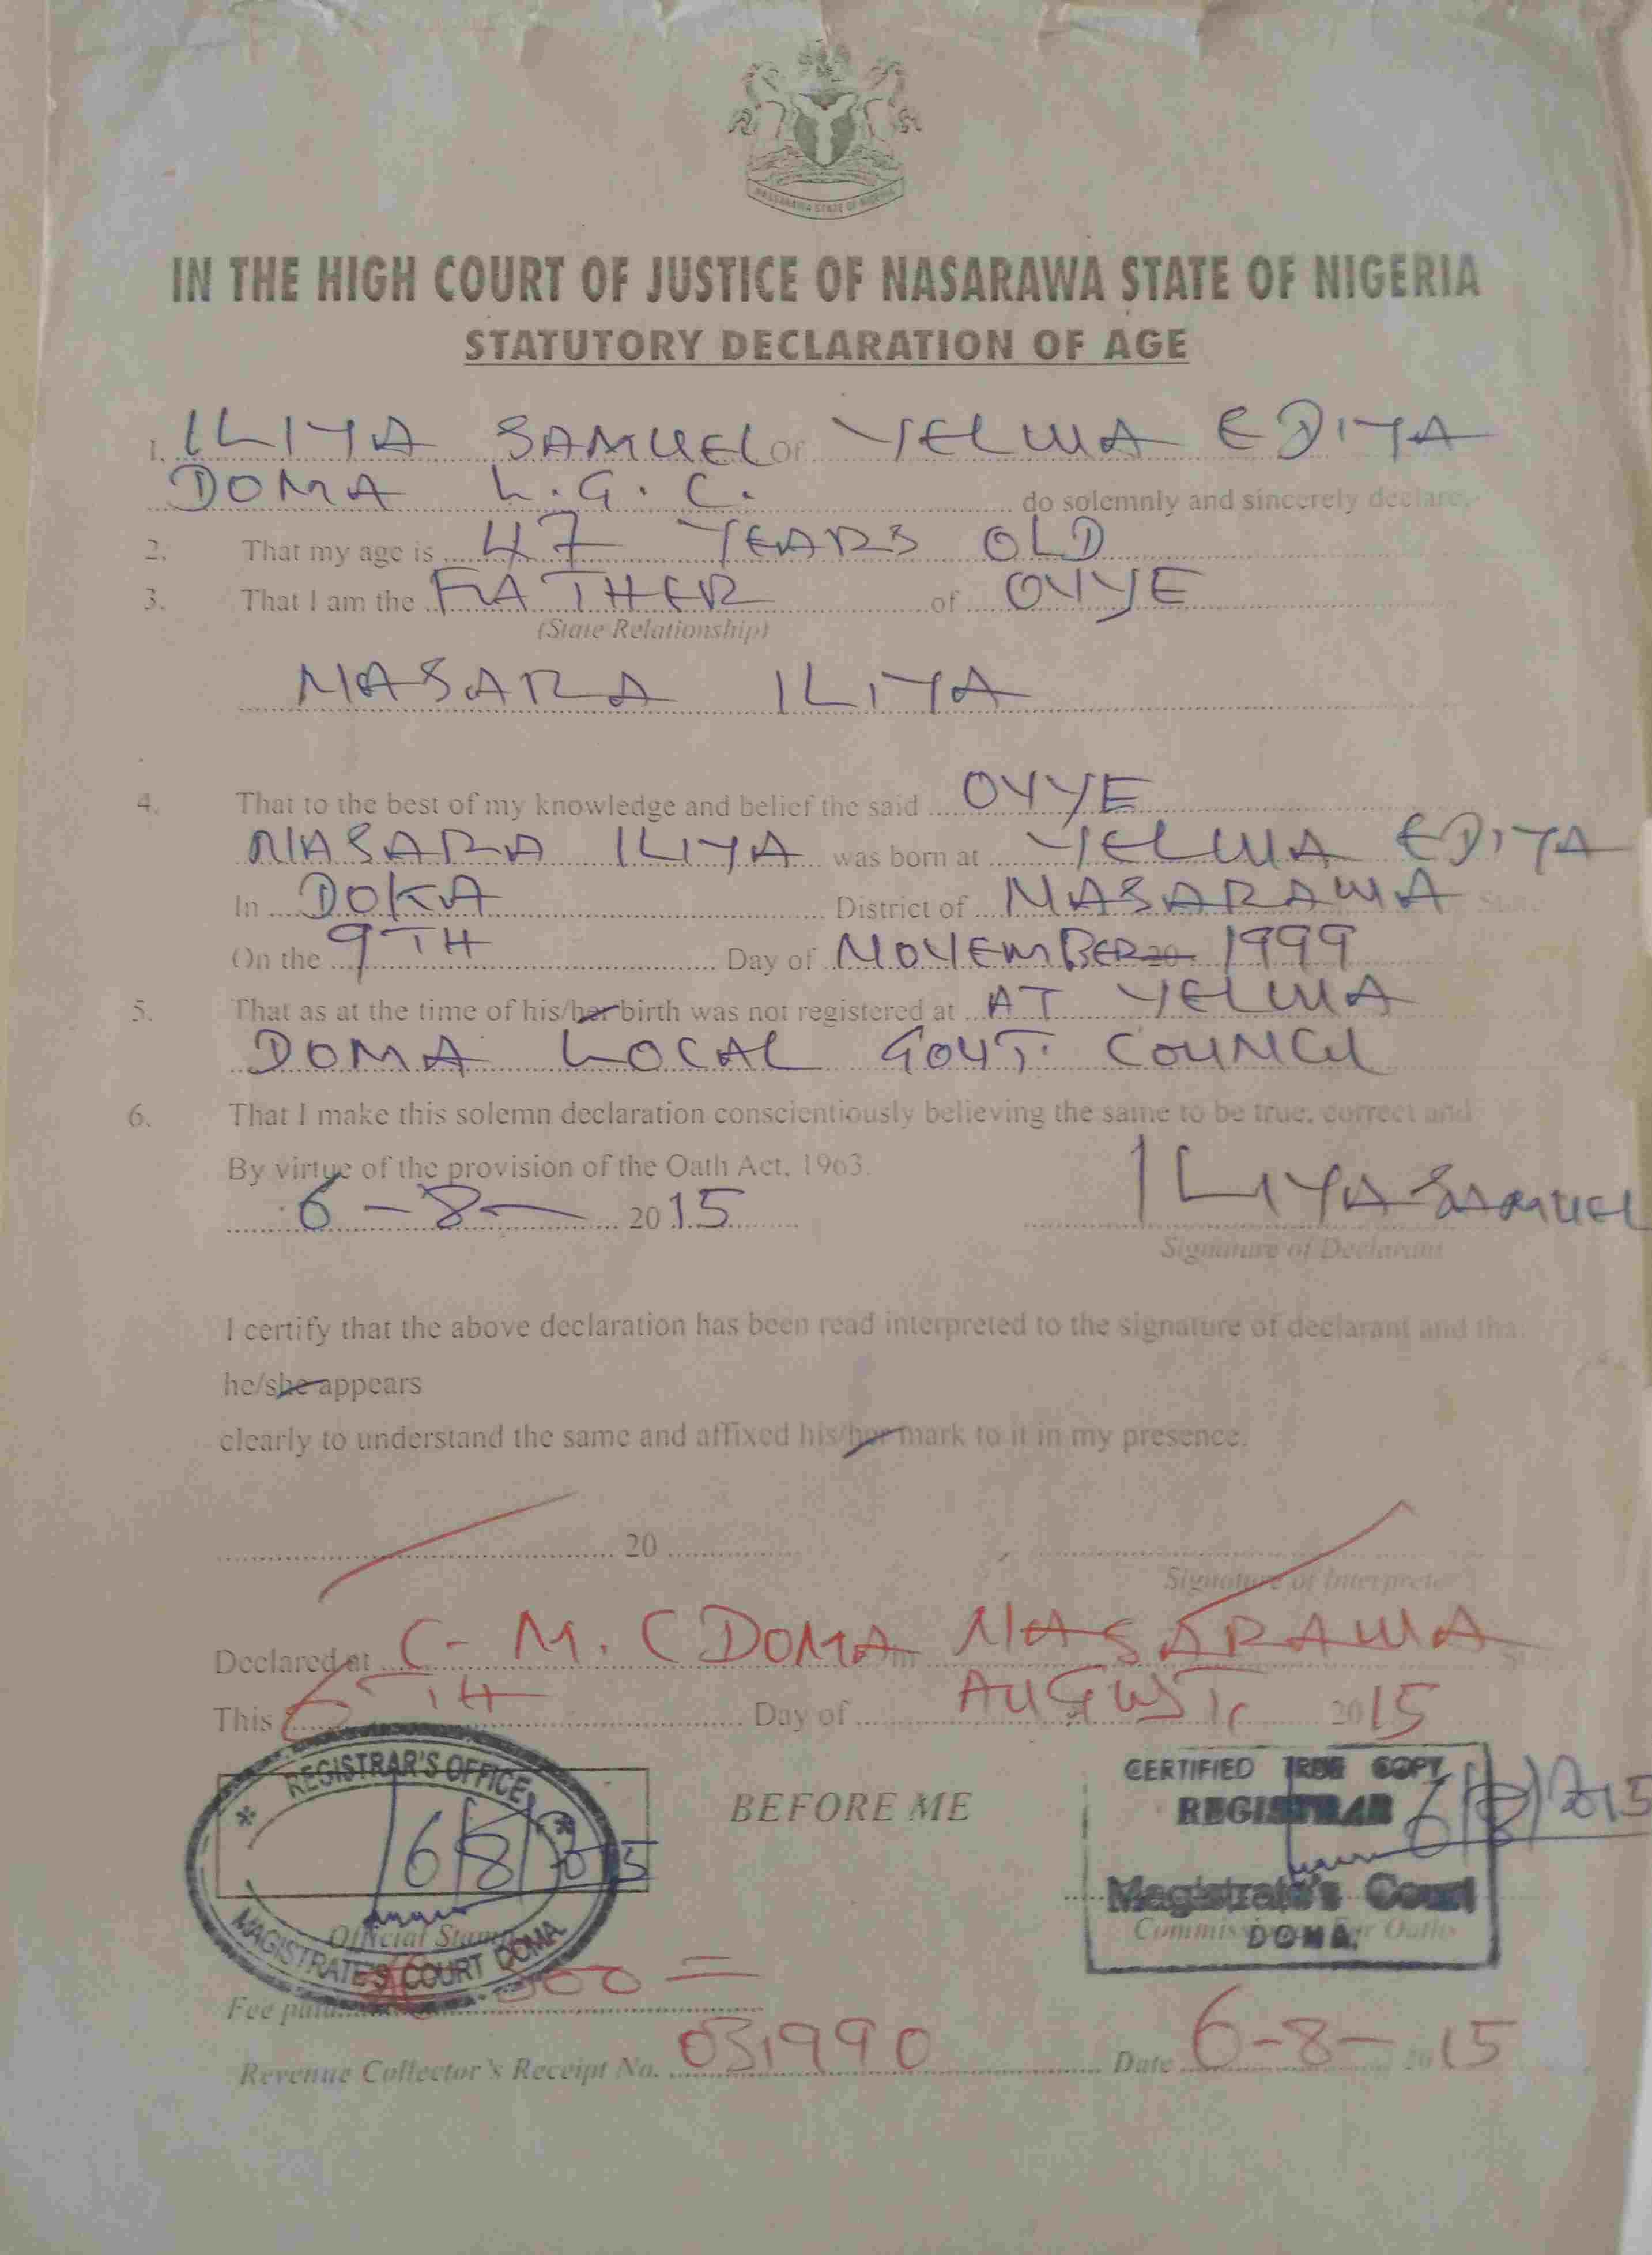 NASARAWA STATE OF NIGERIA
IN THE HIGH COURT OF JUSTICE OF NASARAWA STATE OF NIGERIA
STATUTORY DECLARATION OF AGE
1. ILIYA SAMUEL of YELWA EDIYA
DOMA L.G.C. do solemnly and sincerely declare,
2. That my age is 47 YEARS OLD
3. That I am the FATHER of OVYE
(State Relationship)
NASARA ILIYA
4. That to the best of my knowledge and belief the said OVYE
NASARA ILIYA was born at YELWA EDIYA
In DOKA District of NASARAWA State
On the 9TH Day of NOVEMBER 20 1999
5. That as at the time of his/her birth was not registered at AT YELWA
DOMA LOCAL GOVT. COUNCIL
6. That I make this solemn declaration conscientiously believing the same to be true, correct and
By virtue of the provision of the Oath Act, 1963.
6-8- 2015 ILIYA SAMUEL
Signature of Declarant
I certify that the above declaration has been read interpreted to the signature of declarant and tha
he/she appears
clearly to understand the same and affixed his/her mark to it in my presence.
20
Signature of Interpreter
Declared at C.M.C DOMA in NASARAWA
This 6TH Day of AUGUST 2015
REGISTRAR'S OFFICE
6/8/2015
MAGISTRATE'S COURT DOMA
Official Stamp
BEFORE ME
CERTIFIED TRUE COPY
REGISTRAR 6/8/2015
Magistrate's Court
Commissioner For Oaths
DOMA.
Fee paid 300=
Revenue Collector's Receipt No. 031990 Date 6-8- 2015